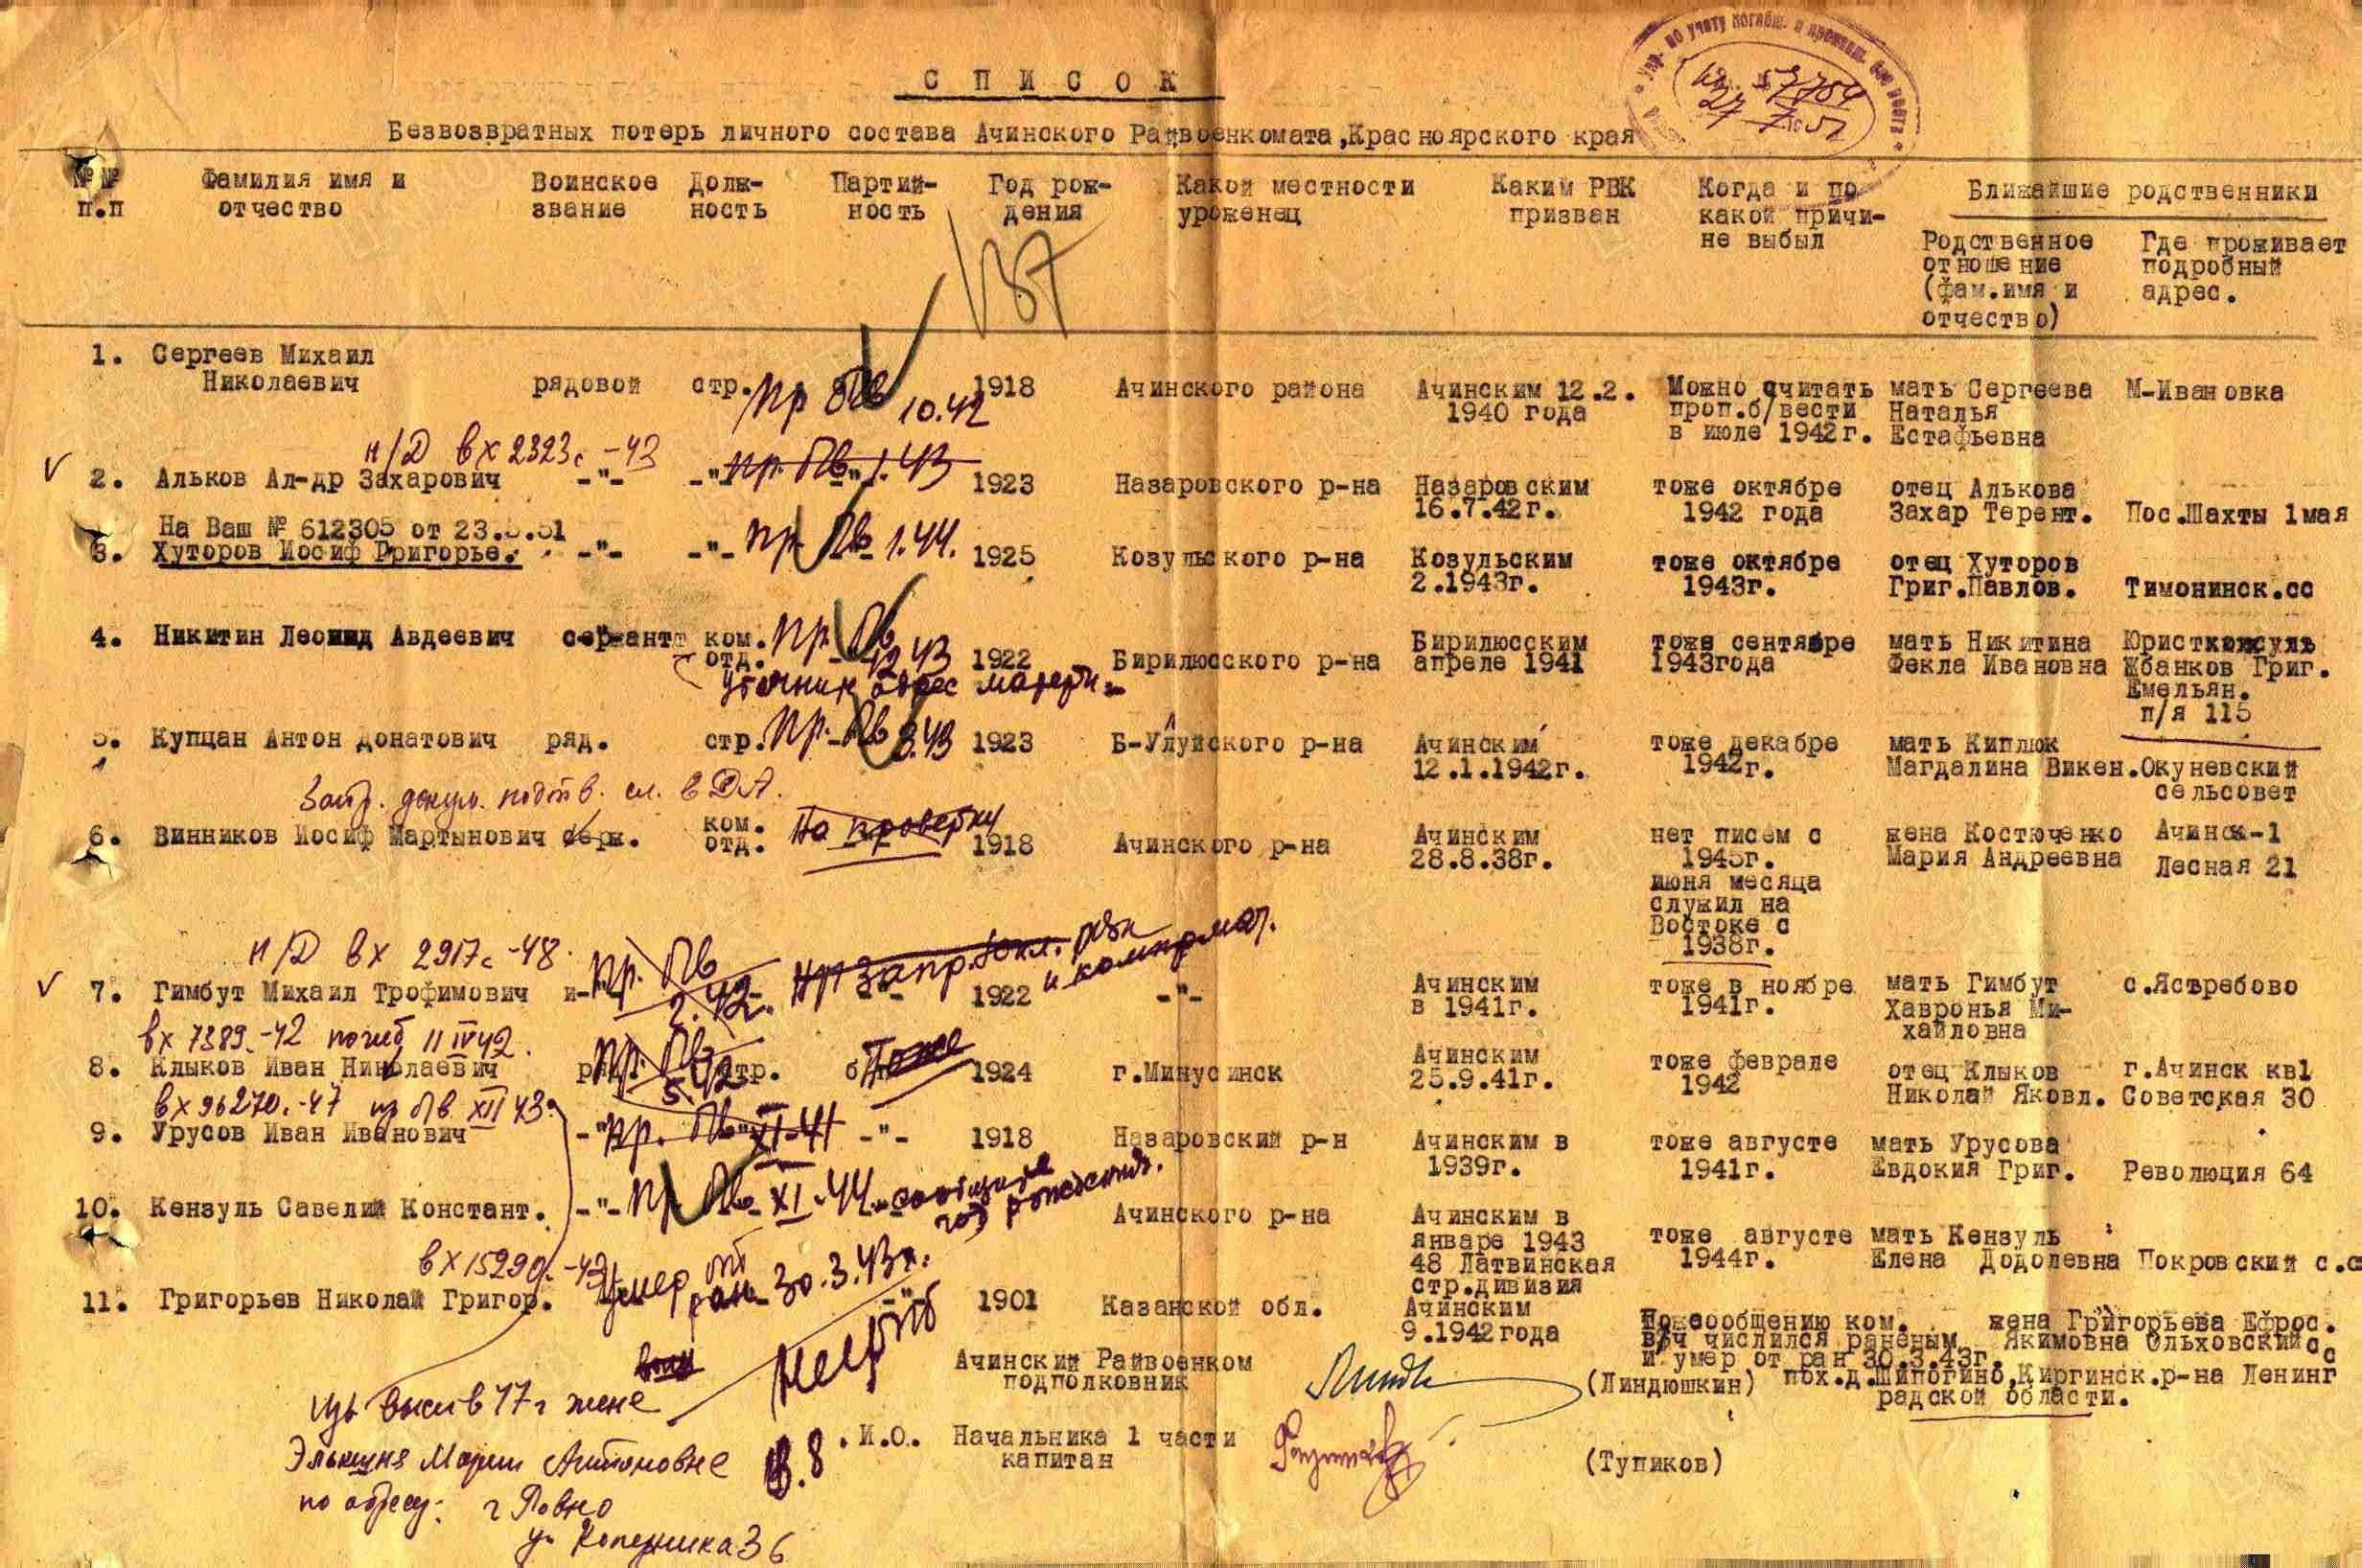 С П И С О К
Безвозвратных потерь личного состава Ачинского Райвоенкомата, Красноярского края
вх. 57784
27 7 51
№№ п.п
Фамилия имя и отчество
Воинское звание
Долж-ность
Партий-ность
Год рож-дения
Какой местности уроженец
Каким РВК призван
Когда и по какой причи-не выбыл
Ближайшие родственники
Родственное отношение (фам.имя и отчество)
Где проживает подробный адрес.
137
1. Сергеев Михаил
Николаевич рядовой стр. 1918 Ачинского района Ачинским 12.2. Можно считать мать Сергеева М-Ивановка
пр Пв 10.42
1940 года проп.б/вести Наталья
в июле 1942г. Естафьевна
н/Д вх 2323с -43
2. Альков Ал-др Захарович -"- -"- -"- 1923 Назаровского р-на Назаровским тоже октябре отец Алькова
пр. Пв 1.43
16.7.42г. 1942 года Захар Терент. Пос.Шахты 1мая
На Ваш № 612305 от 23.5.51
3. Хуторов Иосиф Григорье. -"- -"- 1925 Козульского р-на Козульским тоже октябре отец Хуторов
пр Пв 1.44.
2.1943г. 1943г. Григ.Павлов. Тимонинск.сс
4. Никитин Леонид Авдеевич сержант ком. Бирилюсским тоже сентябре мать Никитина Юристконсуль
пр. Пв 12.43
отд. 1922 Бирилюсского р-на апреле 1941 1943года Фекла Ивановна Жбанков Григ.
уточнить адрес матери
Емельян.
п/я 115
5. Купцан Антон Донатович ряд. стр. 1923 Б-Улуйского р-на Ачинским тоже декабре мать Киплюк
пр. Пв 3.43
12.1.1942г. 1942г. Магдалина Викен. Окуневский
сельсовет
Запр. докум. подтв. сл. в СА.
6. Винников Иосиф Мартынович серж. ком. Ачинским нет писем с жена Костюченко Ачинск-1
На проверку
отд. 1918 Ачинского р-на 28.8.38г. 1945г. Мария Андреевна Лесная 21
июня месяца
служил на
Востоке с
1938г.
н/Д вх 2917с -48.
7. Гимбут Михаил Трофимович -"- 1922 -"- Ачинским тоже в ноябре мать Гимбут с.Ястребово
пр. Пв 2.42.
в 1941г. 1941г. Хавронья Ми-
хайловна
вх 7389с -42 погиб 11 IV 42.
8. Клыков Иван Николаевич стр. 1924 г.Минусинск Ачинским тоже феврале отец Клыков г.Ачинск кв1
пр. Пв 5.42
Тоже
25.9.41г. 1942 Николай Яковл. Советская 30
вх 96270с -47 пр Пв XII 43г
9. Урусов Иван Иванович -"- -"- -"- 1918 Назаровский р-н Ачинским в тоже августе мать Урусова
пр. Пв XI-41
1939г. 1941г. Евдокия Григ. Революция 64
10. Кензуль Савелий Констант. -"- Ачинского р-на Ачинским в тоже августе мать Кензуль
пр Пв XI.44. сообщите год рождения.
январе 1943 1944г. Елена Додолевна Покровский с.с
48 Латвинская
стр.дивизия
вх 15290с -43
11. Григорьев Николай Григор. -"- 1901 Казанской обл. Ачинским
умер от ран 30.3.43г.
9.1942 года
По сообщению ком. жена Григорьева Ефрос.
в/ч числился раненым Якимовна Ольховский сс
и умер от ран 30.3.43г.
пох.д.Шипогино, Киргинск.р-на Ленинг
радской области.
Ачинский Райвоенком
подполковник (Линдюшкин)
. И.О. Начальника 1 части
капитан (Тупиков)
в 47г жене
Марии Антоновне
по адресу: г Ровно
ул Коперника 36